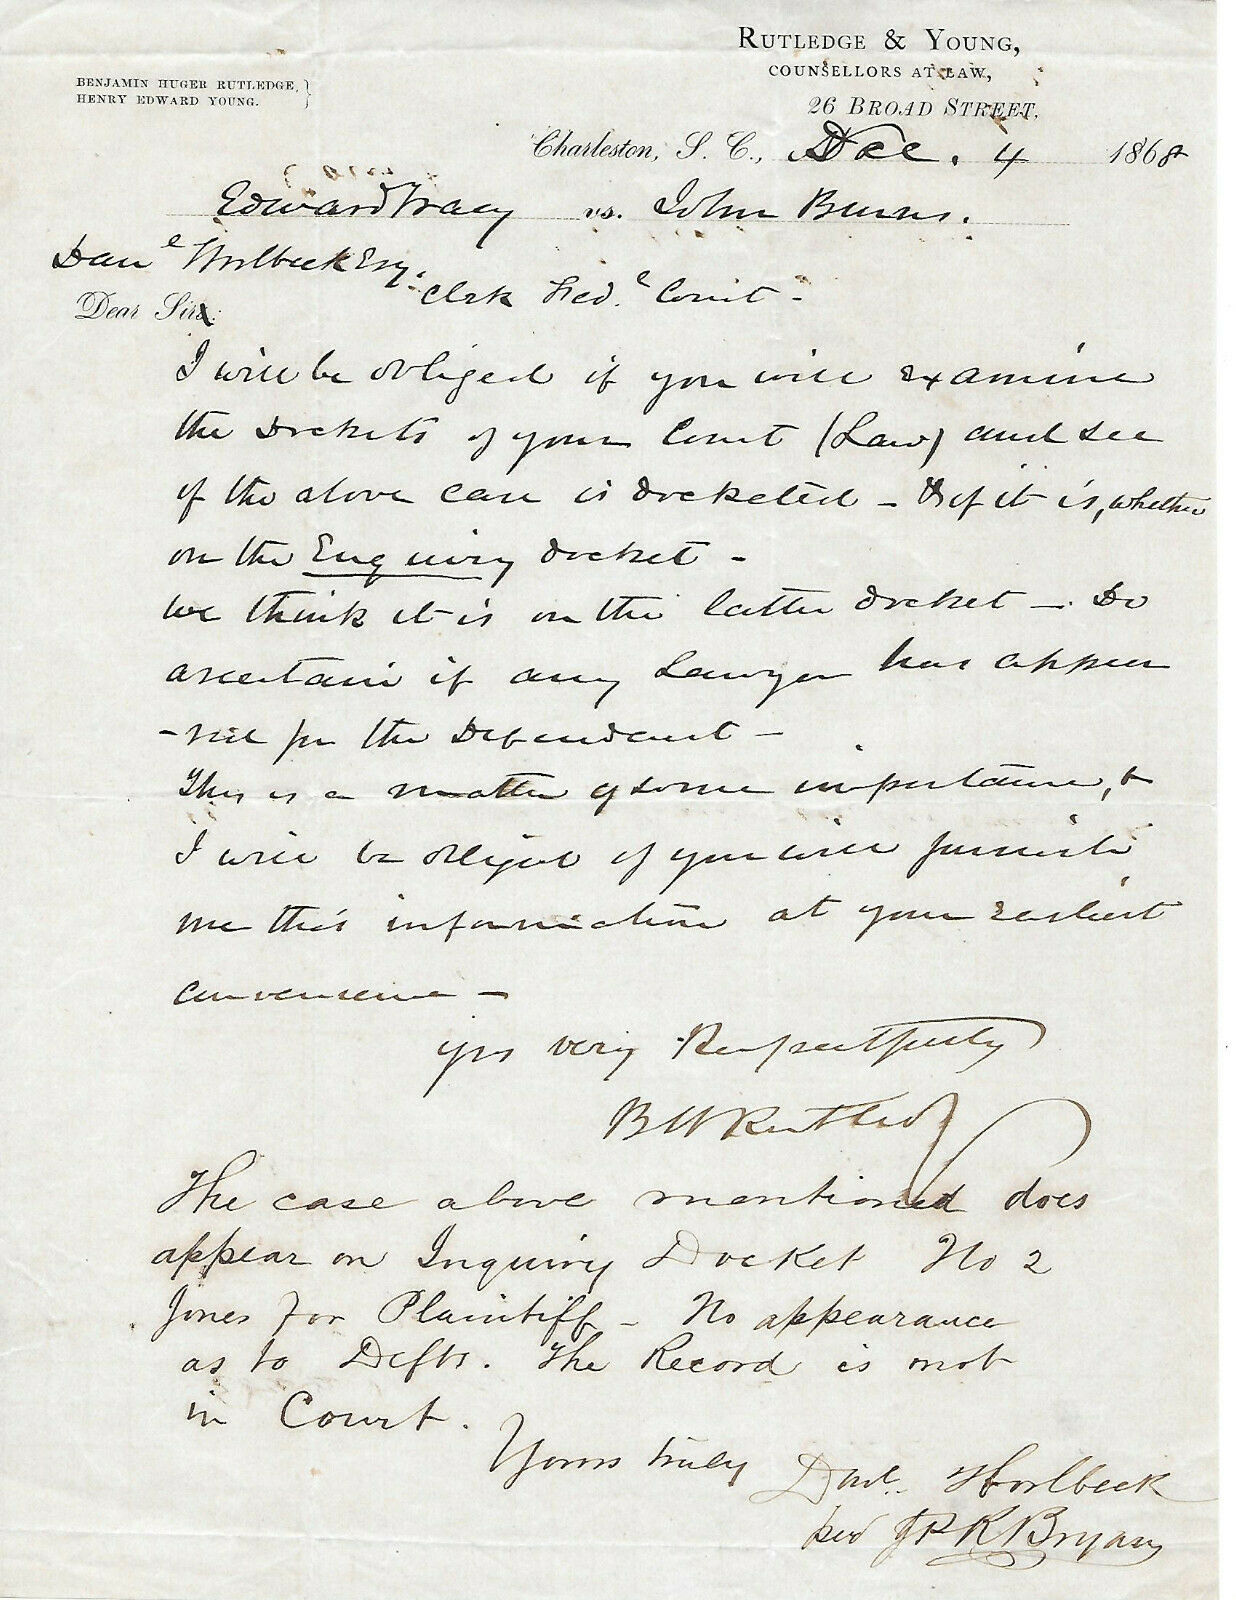 RUTLEDGE & YOUNG,
COUNSELLORS AT LAW,
26 BROAD STREET.
BENJAMIN HUGER RUTLEDGE,
HENRY EDWARD YOUNG.
Charleston, S. C., Dec. 4 1868
Edward Tracy vs. John Burns.
Danl Horlbeck Esq.
Clerk Fedl Court -
Dear Sir:
I will be obliged if you will examine
the Dockets of your Court (Law) and see
if the above case is docketed - & if it is, whether
on the Enquiry docket -
We think it is on the latter docket - Do
ascertain if any Lawyer has appea
-red for the Defendant -
This is a matter of some importance, &
I will be obliged if you will furnish
me this information at your earliest
convenience -
yrs very Respectfully
B H Rutledge
The case above mentioned does
appear on Inquiry Docket No 2
Jones for Plaintiff - No appearance
as to Defts. The Record is not
in Court.
Yours truly Danl. Horlbeck
per J P K Bryan